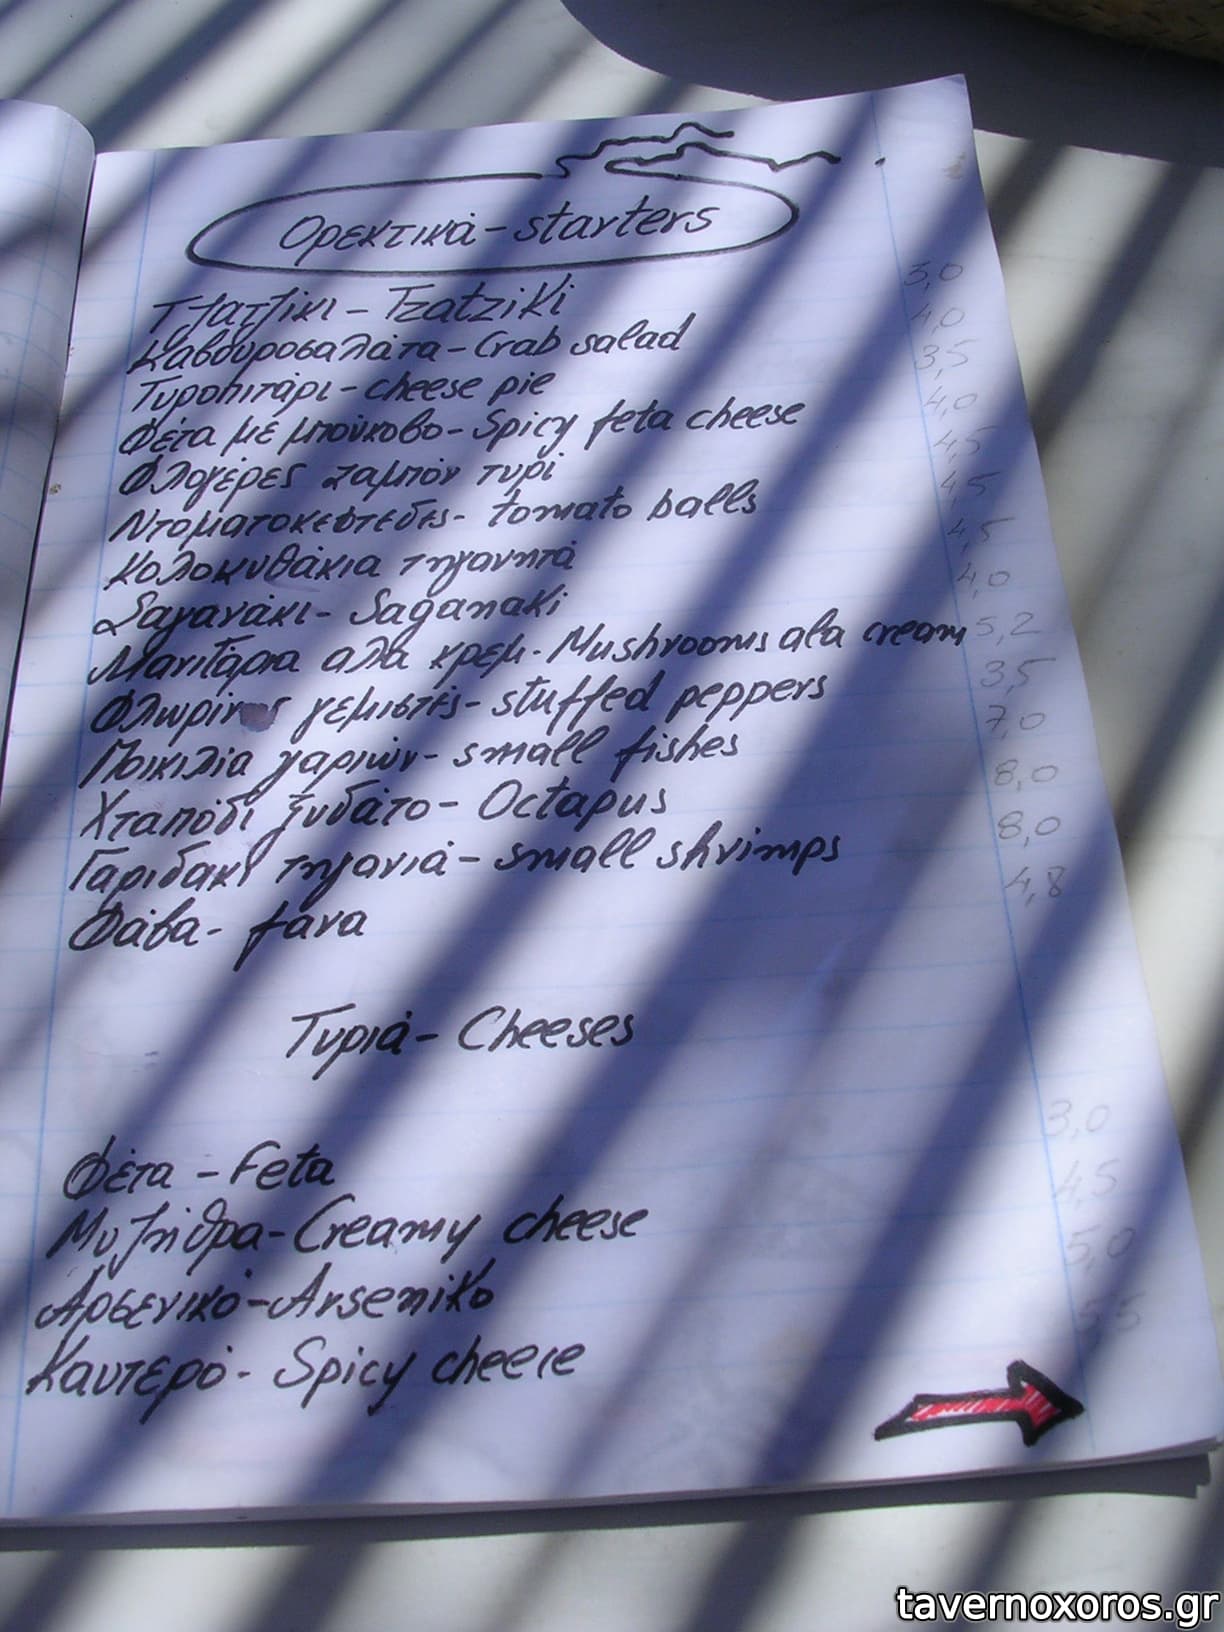 Ορεκτικά - starters
Τζατζίκι - Tzatziki 3,0
Καβουροσαλάτα - Crab salad 4,0
Τυροπιτάρι - cheese pie 3,5
Φέτα μέ μπούκοβο - Spicy feta cheese 4,0
Φλογέρες ζαμπόν τυρί 4,5
Ντοματοκεφτεδες - tomato balls 4,5
Κολοκυθάκια τηγανητά 4,5
Σαγανάκι - Saganaki 4,0
Μανιτάρια αλα κρεμ - Mushrooms ala cream 5,2
Φλωρίνης γεμιστές - stuffed peppers 3,5
Ποικιλία ψαριών - small fishes 7,0
Χταπόδι ξυδάτο - Octapus 8,0
Γαριδακι τηγανιά - small shrimps 8,0
Φάβα - fava 4,8
Τυριά - Cheeses
Φέτα - Feta 3,0
Μυζηθρα - Creamy cheese 4,5
Αρσενικό - Arseniko 5,0
Καυτερό - Spicy cheese 5,5
tavernoxoros.gr